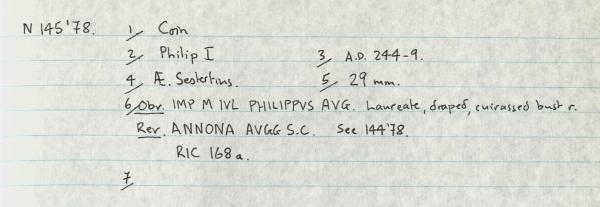 N 145'78. 1/ Coin
2/ Philip I 3/ A.D. 244-9.
4/ Æ. Sestertius. 5/ 29 mm.
6/ Obv. IMP M IVL PHILIPPVS AVG. Laureate, draped, cuirassed bust r.
Rev. ANNONA AVGG S.C. See 144'78.
RIC 168a.
7/